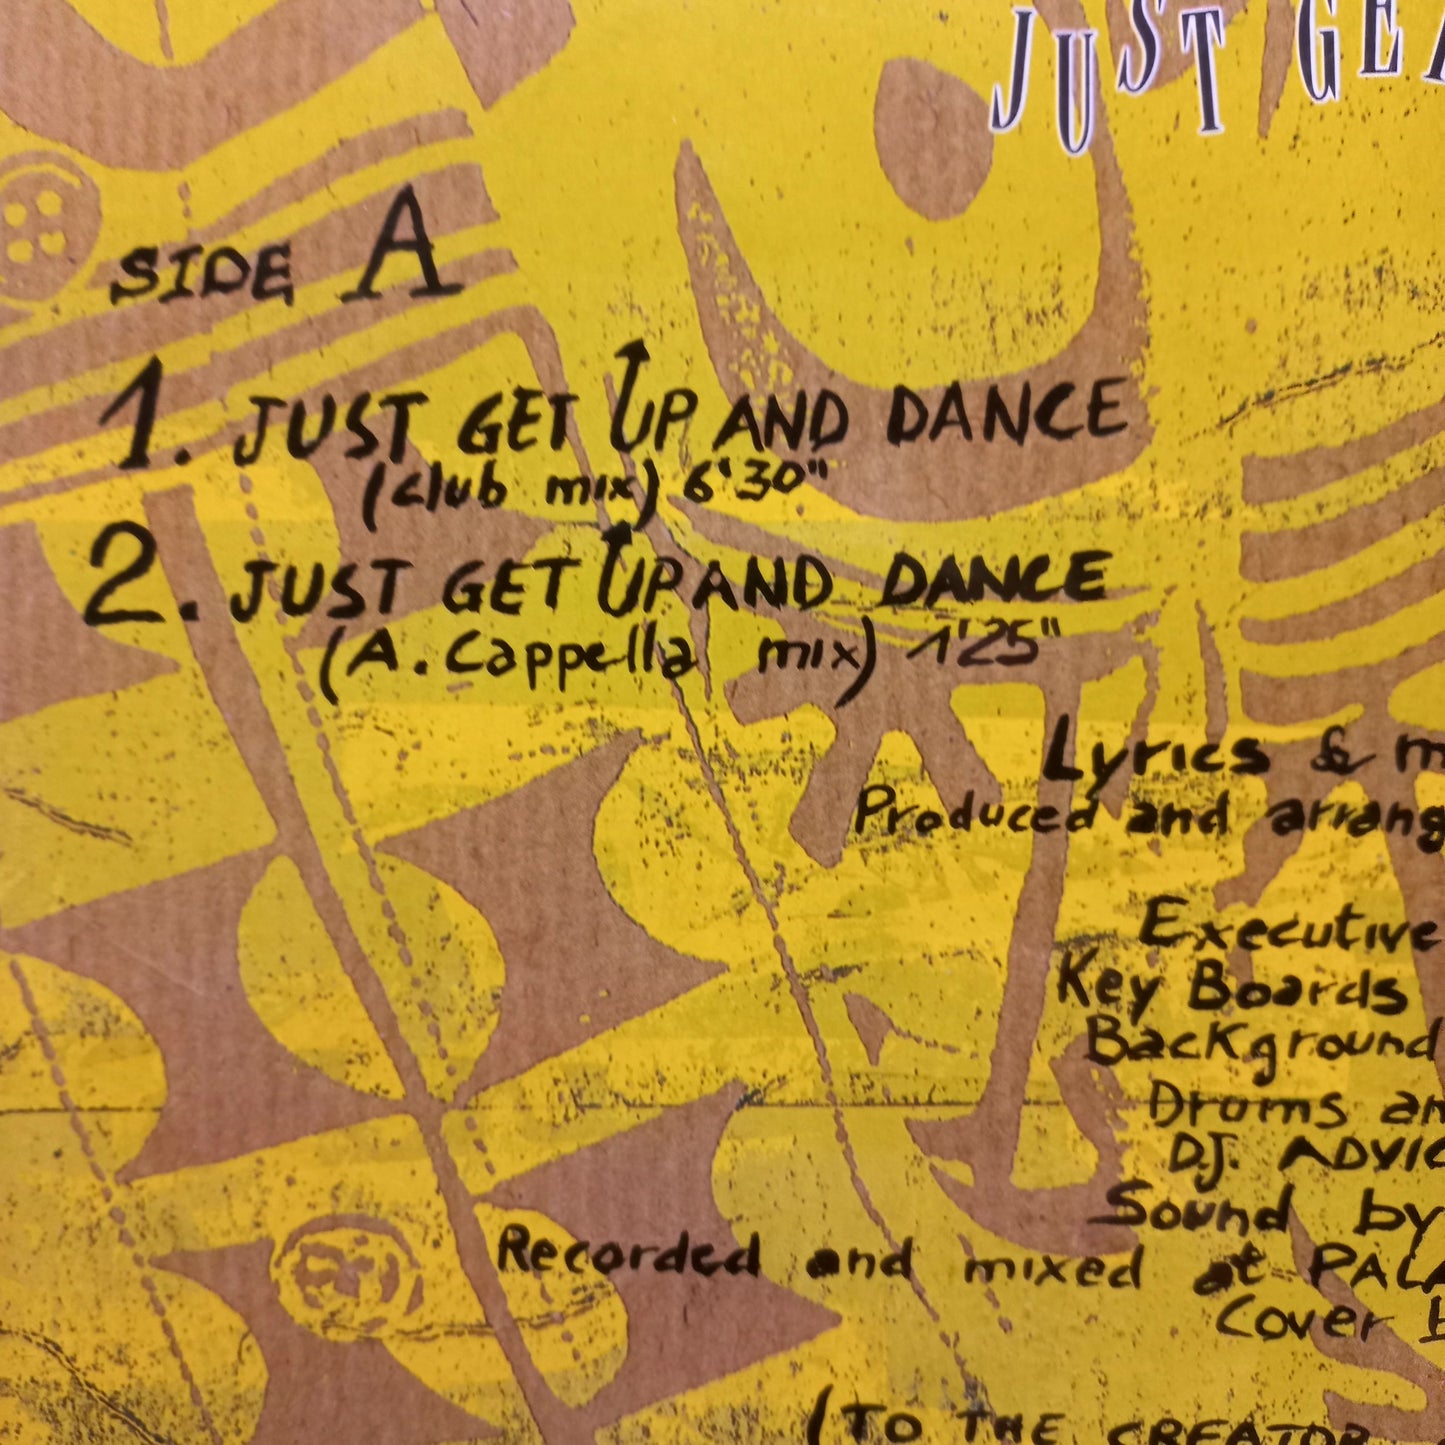 JUST GE
SIDE A
1. JUST GET UP AND DANCE
(club mix) 6'30"
2. JUST GET UP AND DANCE
(A. Cappella mix) 1'25"
Lyrics & m
Produced and arrang
Executive
Key Boards
Background
Drums an
D.J. ADVIC
Sound by
Recorded and mixed at PALA
Cover
(TO THE CREATOR